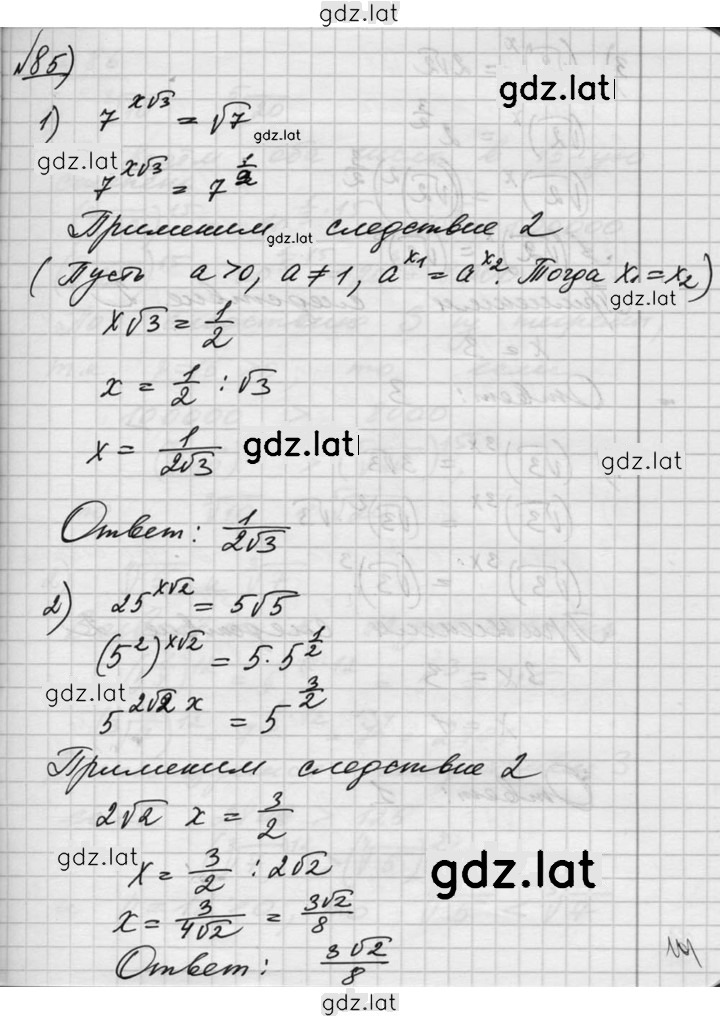 gdz.lat
№85)
1) 7^(x√3) = √7
gdz.lat
gdz.lat
gdz.lat
7^(x√3) = 7^(1/2)
Применим следствие 2
gdz.lat
(Пусть a>0, a≠1, a^(x₁) = a^(x₂). Тогда x₁=x₂)
gdz.lat
x√3 = 1/2
x = 1/2 : √3
x = 1/(2√3)
gdz.lat
gdz.lat
Ответ: 1/(2√3)
2) 25^(x√2) = 5√5
(5²)^(x√2) = 5·5^(1/2)
gdz.lat
5^(2√2 x) = 5^(3/2)
Применим следствие 2
2√2 x = 3/2
gdz.lat
x = 3/2 : 2√2
gdz.lat
x = 3/(4√2) = 3√2/8
Ответ: 3√2/8
gdz.lat